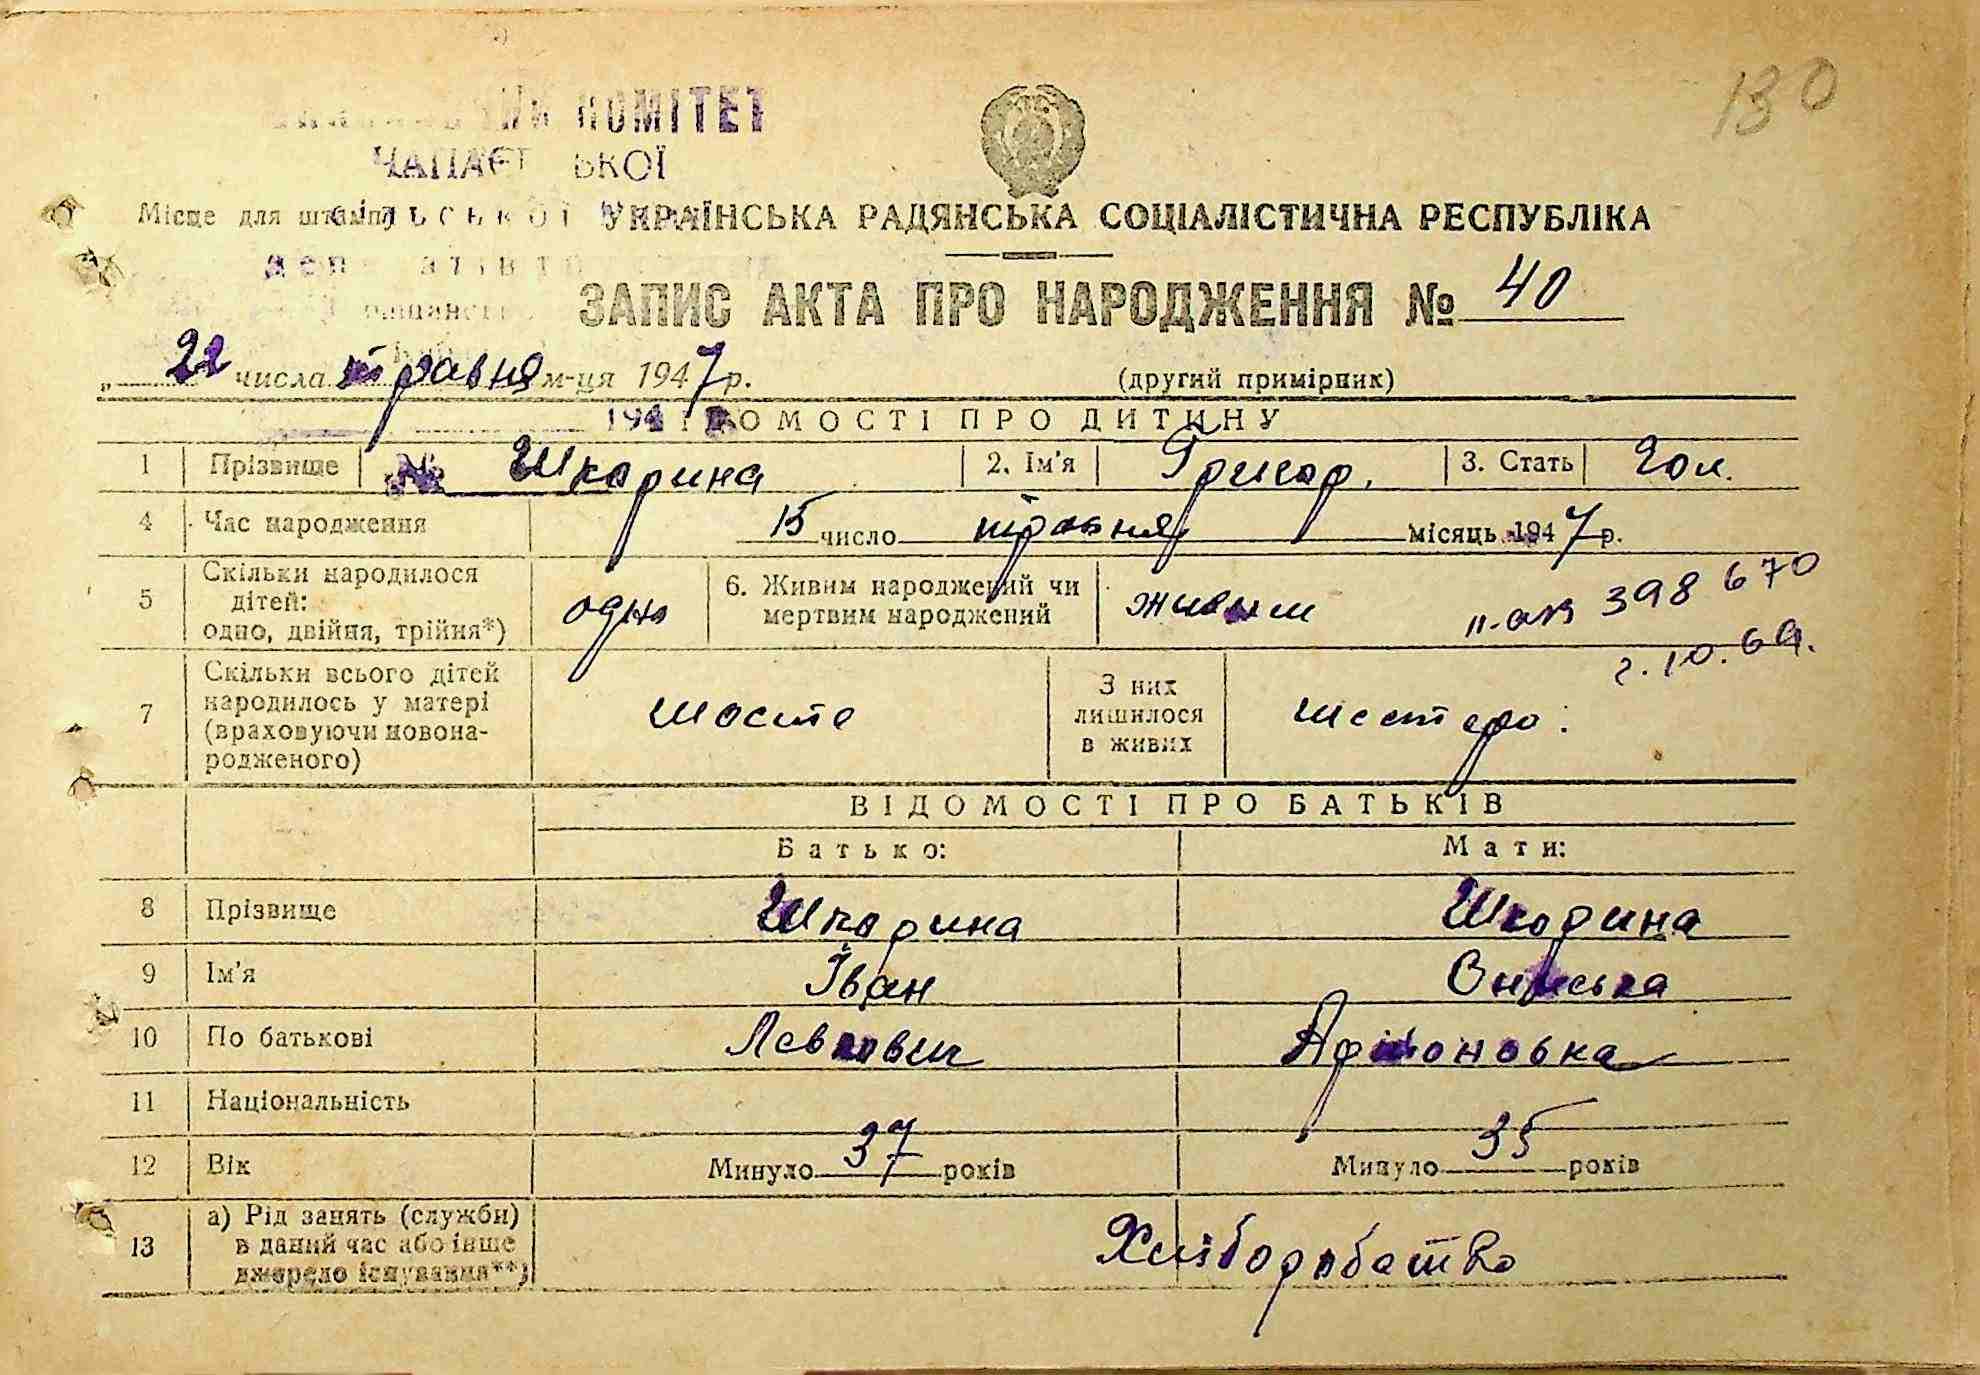 130
КОМІТЕТ
ЧАПАЄ ЬКОЇ
Місце для штампу
УКРАЇНСЬКА РАДЯНСЬКА СОЦІАЛІСТИЧНА РЕСПУБЛІКА
ЗАПИС АКТА ПРО НАРОДЖЕННЯ № 40
„ 22 числа травня м-ця 1947 р.
(другий примірник)
194 ОМОСТІ ПРО ДИТИНУ
1 Прізвище № Шкарина 2. Ім'я Григор. 3. Стать Чол.
4 Час народження 15 число травня місяць 1947 р.
5 Скільки народилося дітей: одно, двійня, трійня*) одно 6. Живим народжений чи мертвим народжений живим
398 670
2.10.69.
7 Скільки всього дітей народилось у матері (враховуючи новонародженого) шосте З них лишилося в живих шестеро.
ВІДОМОСТІ ПРО БАТЬКІВ
Батько: Мати:
8 Прізвище Шкарина Шкарина
9 Ім'я Іван Ониська
10 По батькові Левкович
11 Національність
12 Вік Минуло 37 років Минуло 35 років
13 а) Рід занять (служби) в даний час або інше джерело існування**) Хліборобство